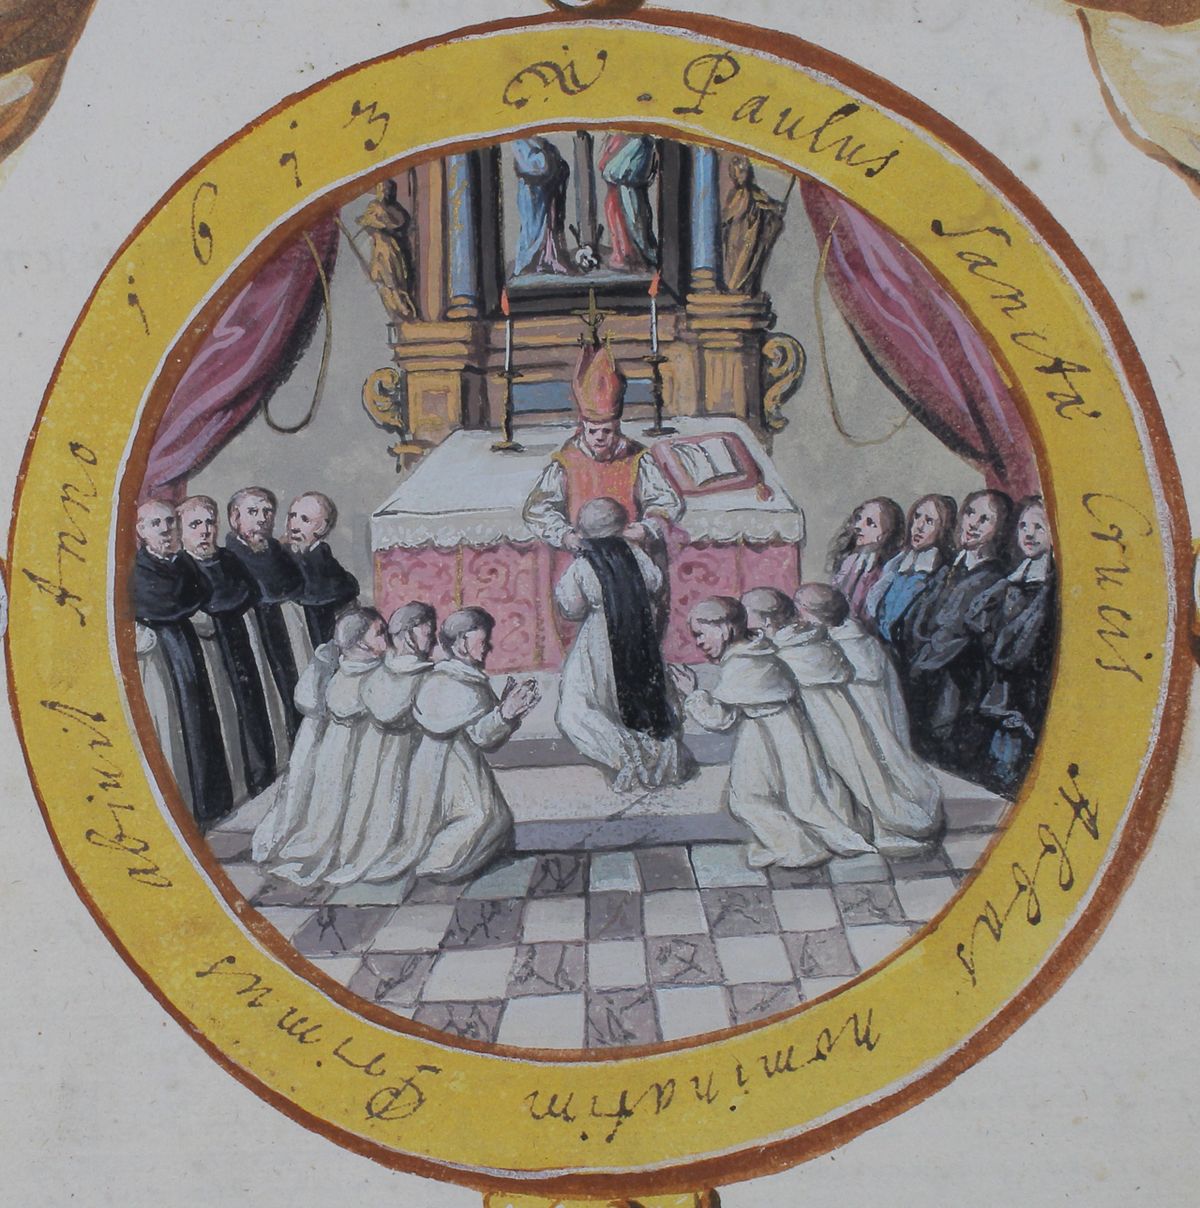 Paulus Sanctæ Crucis Abbas nominatim Primus abiuit Anno 1673